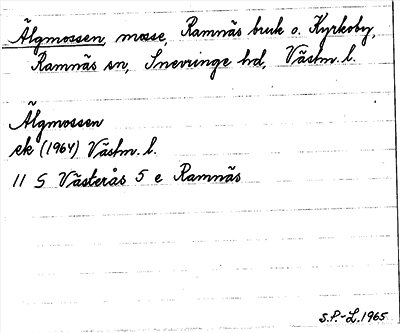 Älgmossen, mosse, Ramnäs bruk o. Kyrkoby,
Ramnäs sn, Snevringe hd, Västm. l.
Älgmossen
ek (1964) Västm. l.
11 S Västerås 5 e Ramnäs
S.P.-L. 1965